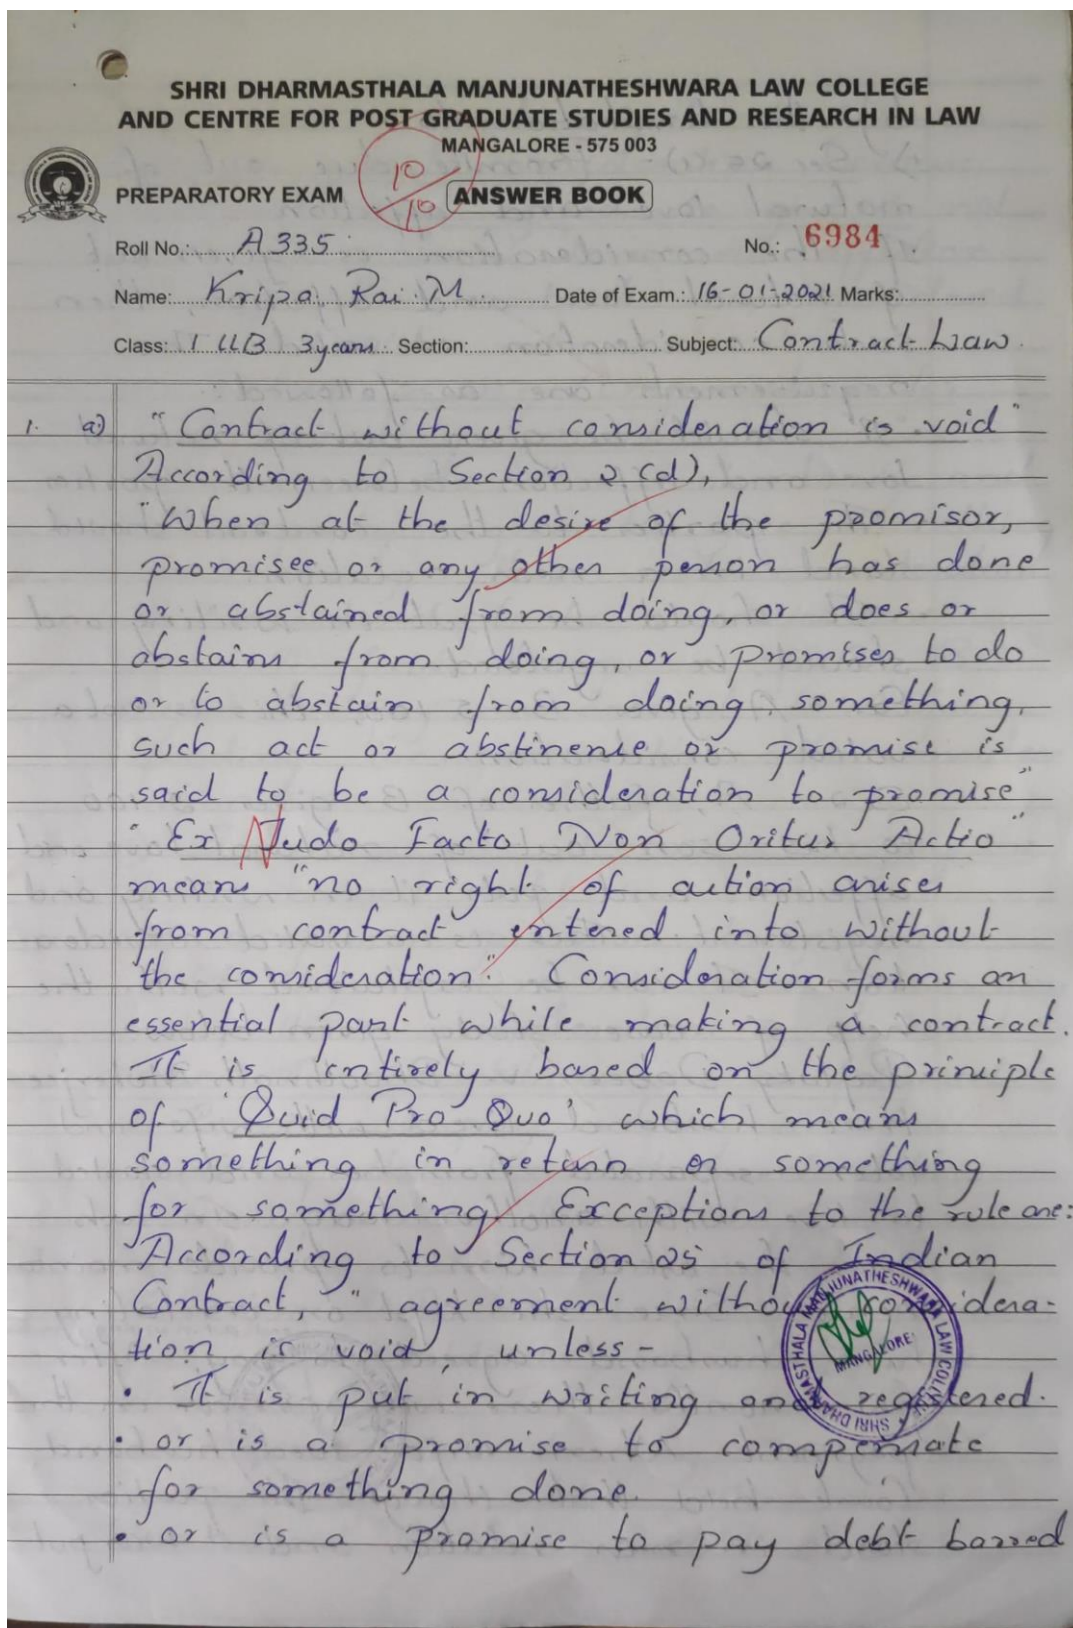 SHRI DHARMASTHALA MANJUNATHESHWARA LAW COLLEGE
AND CENTRE FOR POST GRADUATE STUDIES AND RESEARCH IN LAW
MANGALORE - 575 003
10/10
PREPARATORY EXAM ANSWER BOOK
Roll No.: A335 No.: 6984
Name: Kripa Rai M Date of Exam.: 16-01-2021 Marks:
Class: I LLB 3years Section: Subject: Contract Law
1. a) "Contract without consideration is void"
According to Section 2(d),
"When at the desire of the promisor,
promisee or any other person has done
or abstained from doing, or does or
abstains from doing, or promises to do
or to abstain from doing something,
such act or abstinence or promise is
said to be a consideration to promise"
"Ex Nudo Facto Non Oritur Actio"
means "no right of action arises
from contract entered into without
the consideration". Consideration forms an
essential part while making a contract.
It is entirely based on the principle
of 'Quid Pro Quo' which means
something in return or something
for something. Exceptions to the rule are:
According to Section 25 of Indian
Contract, "agreement without considera-
tion is void, unless -
• It is put in writing and registered.
• or is a promise to compensate
for something done.
• or is a promise to pay debt barred
SHRI DHARMASTHALA MANJUNATHESHWARA LAW COLLEGE
MANGALORE